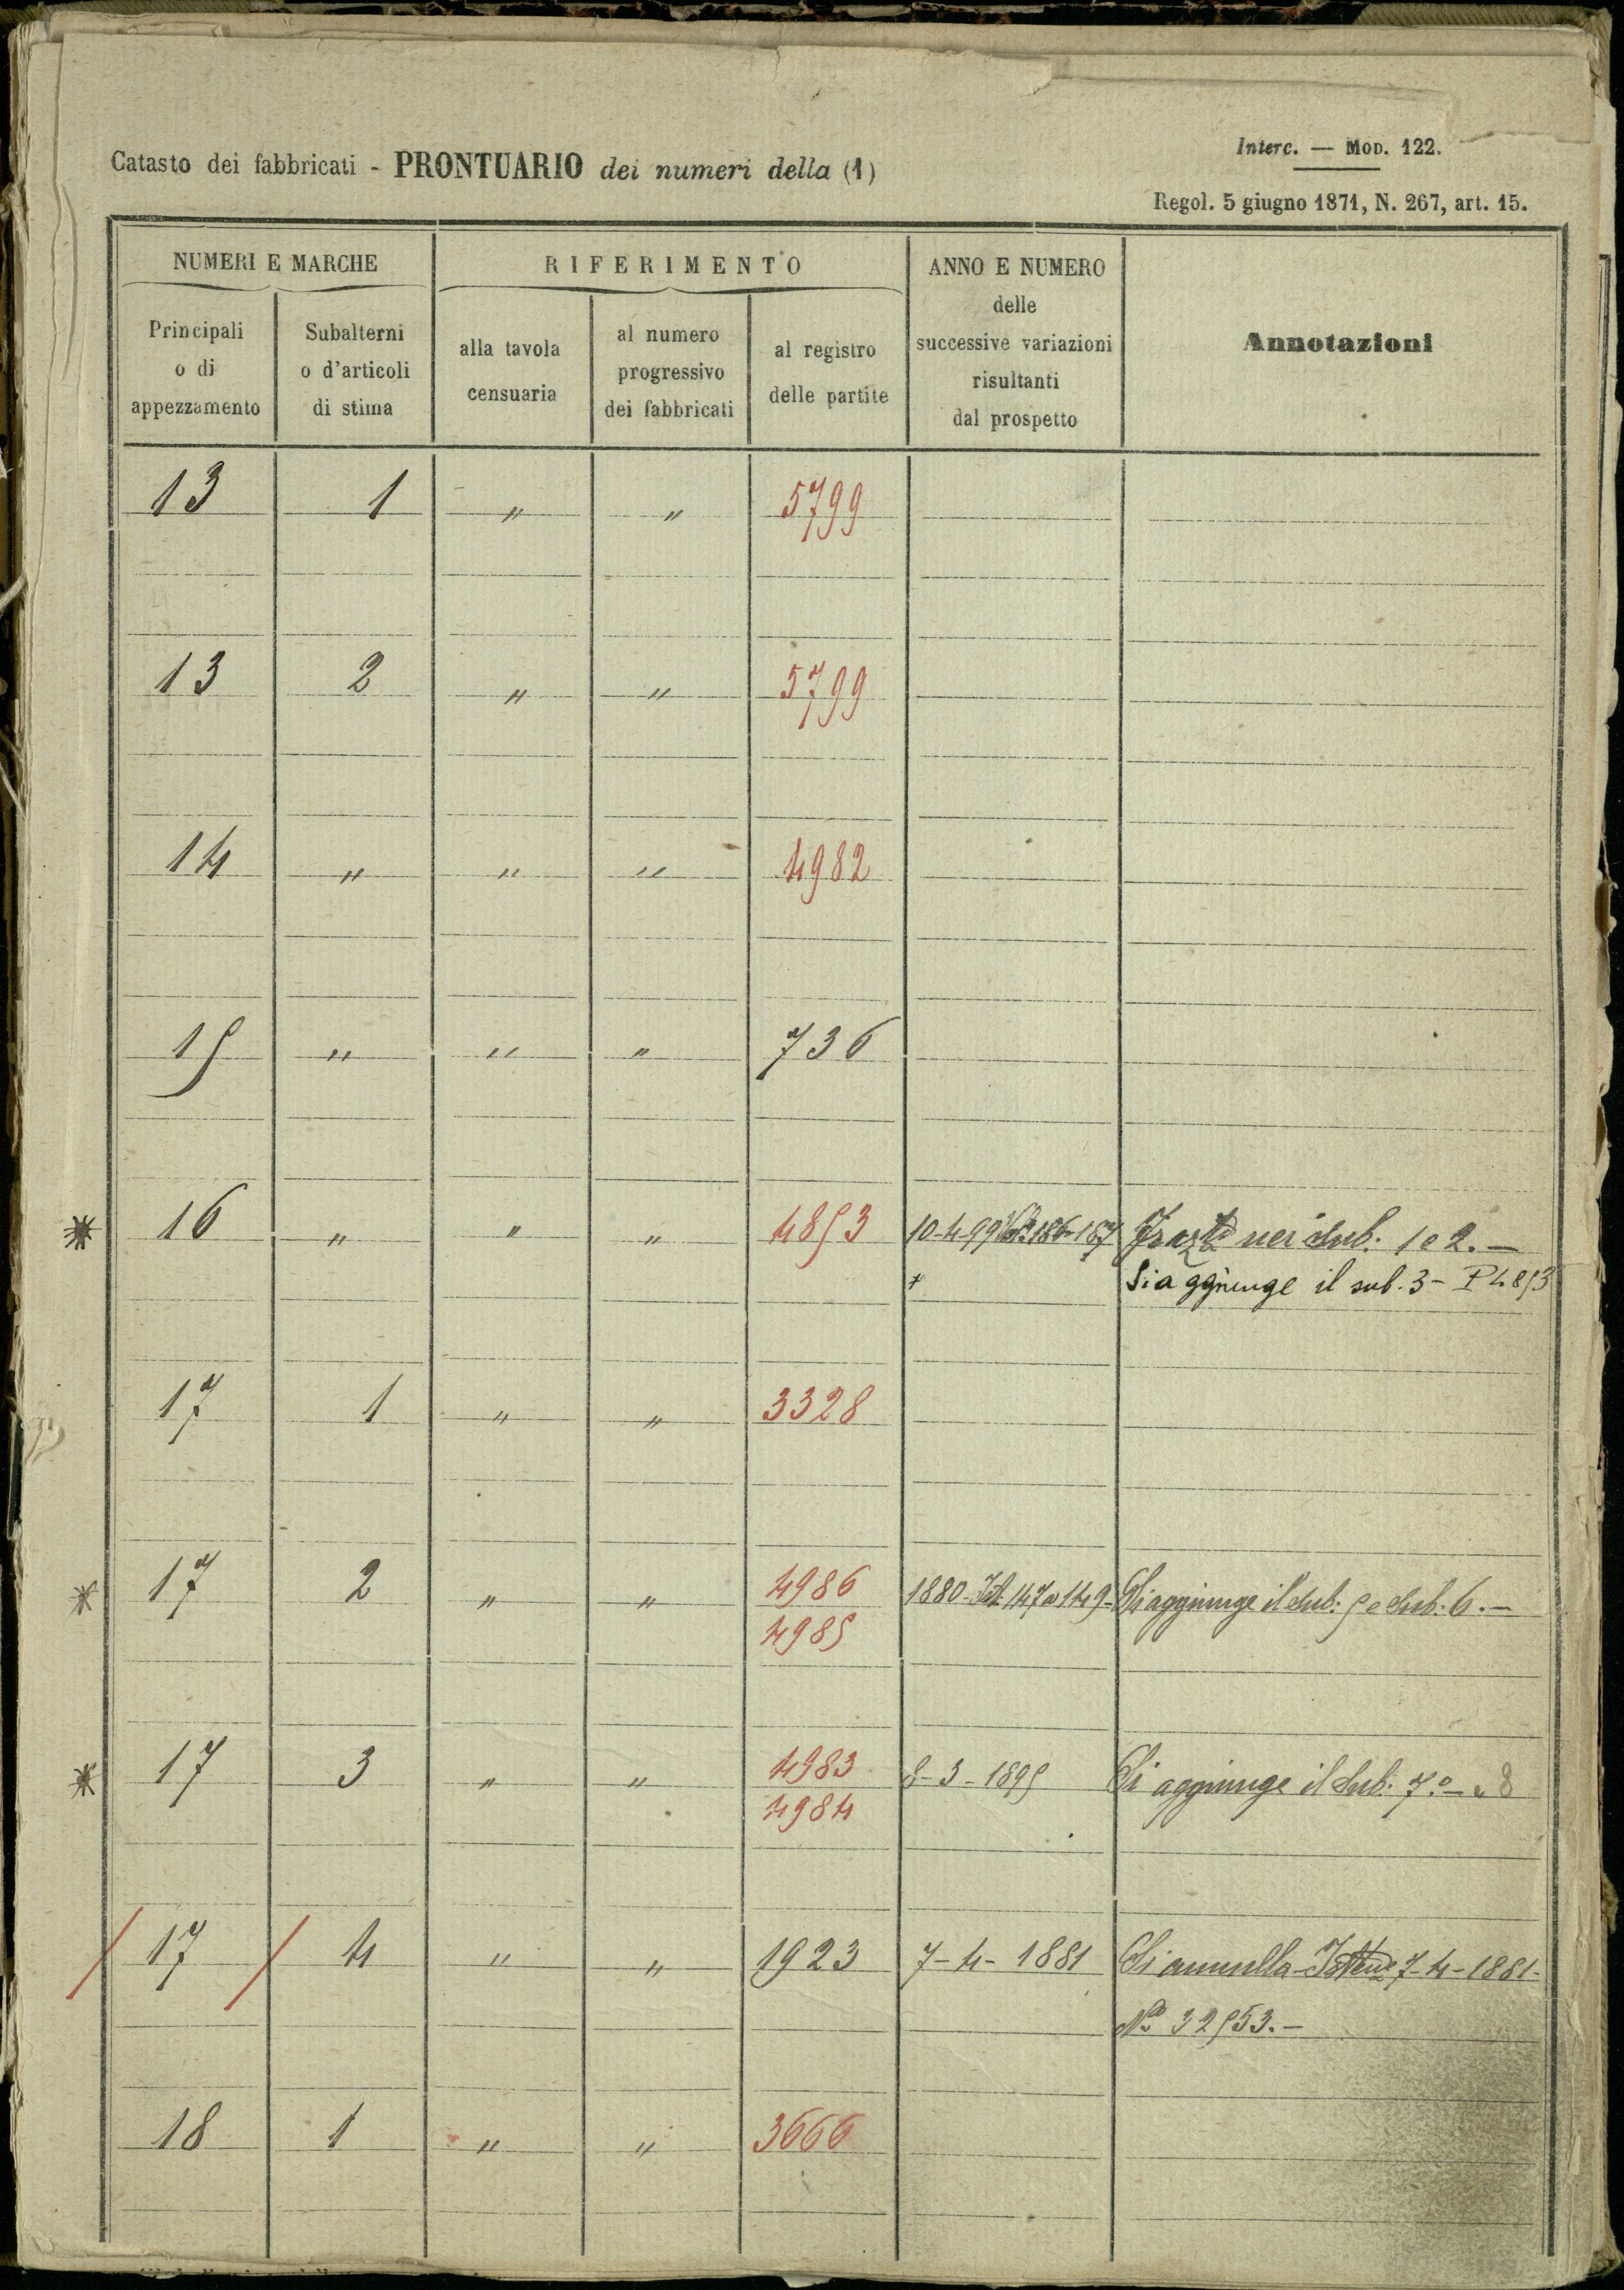 Catasto dei fabbricati - PRONTUARIO dei numeri della (1)
Interc. — Mod. 122.
Regol. 5 giugno 1871, N. 267, art. 15.
NUMERI E MARCHE
RIFERIMENTO
ANNO E NUMERO
delle
successive variazioni
risultanti
dal prospetto
Annotazioni
Principali
o di
appezzamento
Subalterni
o d'articoli
di stima
alla tavola
censuaria
al numero
progressivo
dei fabbricati
al registro
delle partite
13 1 " " 5799
13 2 " " 5799
14 " " " 4982
15 " " " 736
16 " " " 4853 10-4-99 186-187 nei Sub: 1 e 2.—
Si aggiunge il sub. 3 - P 4853
17 1 " " 3328
17 2 " " 4986 1880- 147 a 149- Si aggiunge il Sub: 5 e Sub: 6.—
4985
17 3 " " 4983 8-3-1895 Si aggiunge il Sub: 7.°— e 8
4984
17 4 " " 1923 7-4-1881 Si annulla - 7-4-1881-
N° 32553.—
18 1 " " 3666